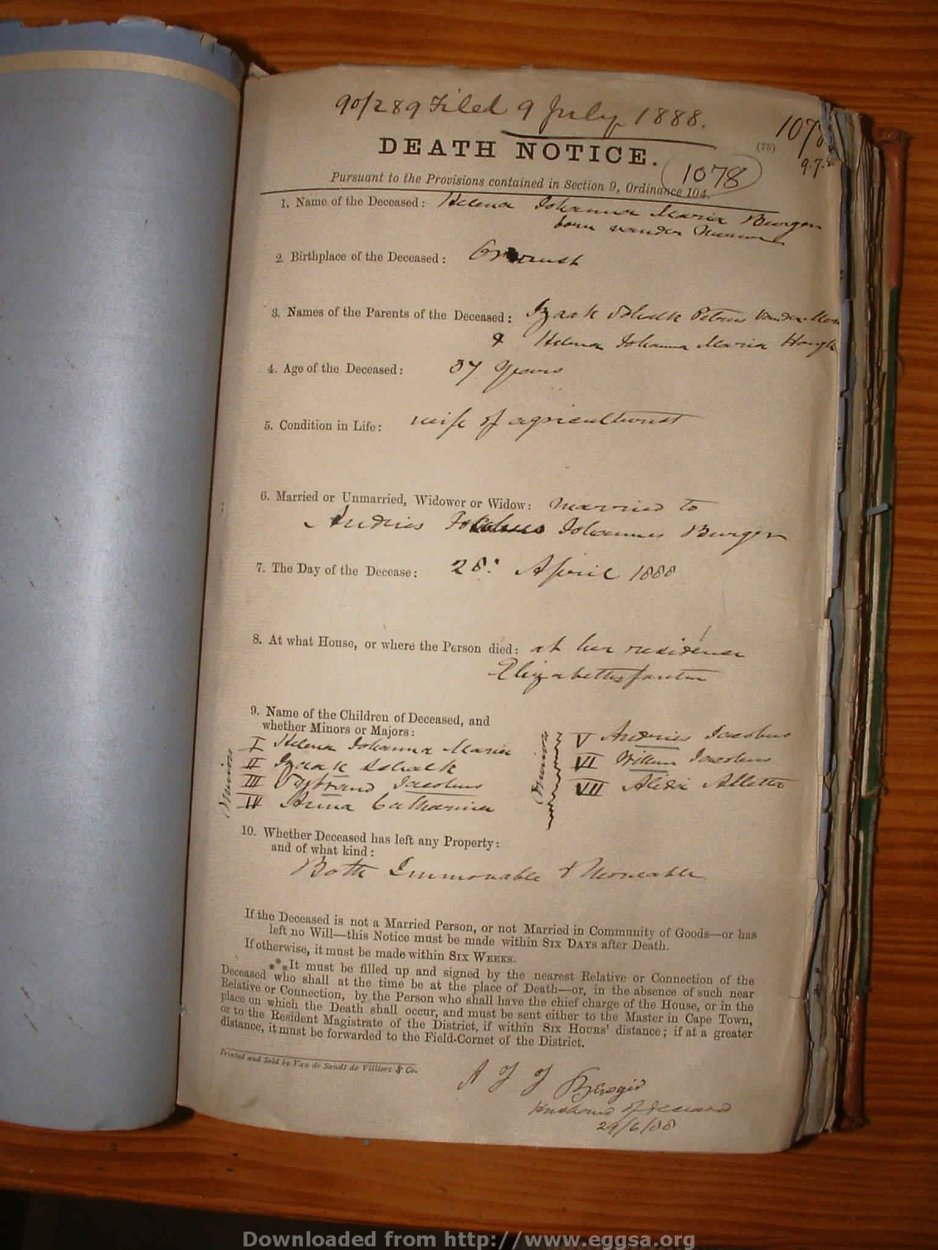 90/289 Filed 9 July 1888.
1078
9.7.
DEATH NOTICE.
(75)
1078
Pursuant to the Provisions contained in Section 9, Ordinance 104.
1. Name of the Deceased: Helena Johanna Maria Burger
born vander
2. Birthplace of the Deceased:
3. Names of the Parents of the Deceased: Izaak Schalk Petrus
& Helena Johanna Maria Hough
4. Age of the Deceased: 37 years
5. Condition in Life: wife of agriculturist
6. Married or Unmarried, Widower or Widow: married to
Andries Johannes Burger
7. The Day of the Decease: 28: April 1888
8. At what House, or where the Person died: at her residence
Elizabethsfontein
9. Name of the Children of Deceased, and
whether Minors or Majors:
I Helena Johanna Maria
II Izaak Schalk
III Jacobus
IV Anna Catharina
V Andries Jacobus
VI Willem Jacobus
VII Alida Aletta
10. Whether Deceased has left any Property:
and of what kind:
Both Immovable & Moveable
If the Deceased is not a Married Person, or not Married in Community of Goods—or has
left no Will—this Notice must be made within SIX DAYS after Death.
If otherwise, it must be made within SIX WEEKS.
*** It must be filled up and signed by the nearest Relative or Connection of the
Deceased who shall at the time be at the place of Death—or, in the absence of such near
Relative or Connection, by the Person who shall have the chief charge of the House, or in the
place on which the Death shall occur, and must be sent either to the Master in Cape Town,
or to the Resident Magistrate of the District, if within SIX HOURS' distance; if at a greater
distance, it must be forwarded to the Field-Cornet of the District.
Printed and Sold by Van de Sandt de Villiers & Co.
A J J
Husband of deceased
29/6/88
Downloaded from http://www.eggsa.org